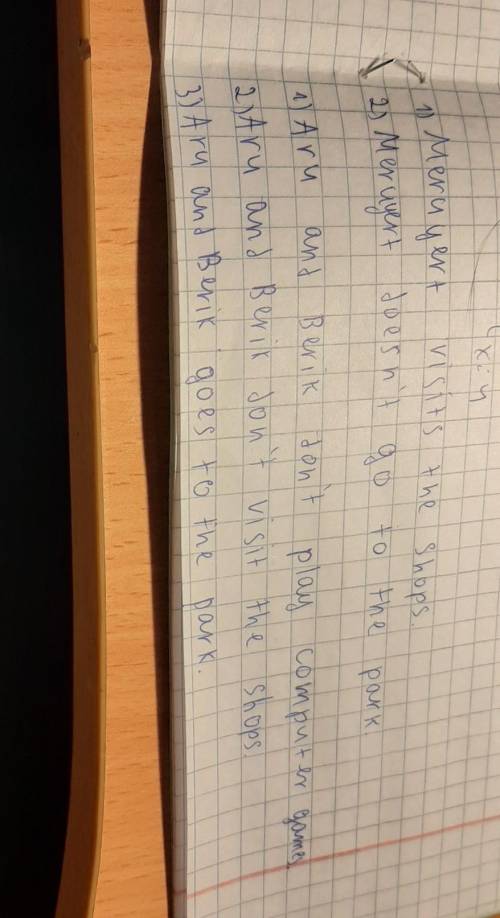 1) Meruyert visits the shops.
2) Meruyert doesn't go to the park
1) Aru and Berik don't play computer games.
2) Aru and Berik don't visit the shops.
3) Aru and Berik goes to the park.